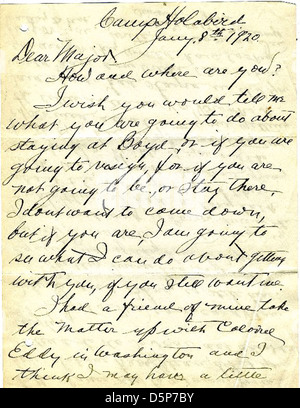 Camp Holabird
Jany. 8th 1920
Dear Major:
How and where are you?
I wish you would tell me
what you are going to do about
staying at Boyd, or if you are
going to resign, for if you are
not going to be, or stay there,
I dont want to come down,
but if you are, I am going to
see what I can do about getting
with you, if you still want me.
I had a friend of mine take
the matter up with Colonel
Eddy in Washington and I
think I may have a little
alamy stock photo
D5P7BY
www.alamy.com